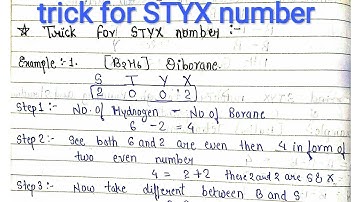 trick for STYX number
☆ Trick for STYX number :-
Example :- 1. [B2H6] Diborane.
S T Y X
2 0 0 2
Step1 :- No. of Hydrogen - No of Borane
6 - 2 = 4
Step 2 :- See both 6 and 2 are even then 4 in form of
two even number
4 = 2+2 these 2 and 2 are S & X
Step 3 :- Now take different between B and S